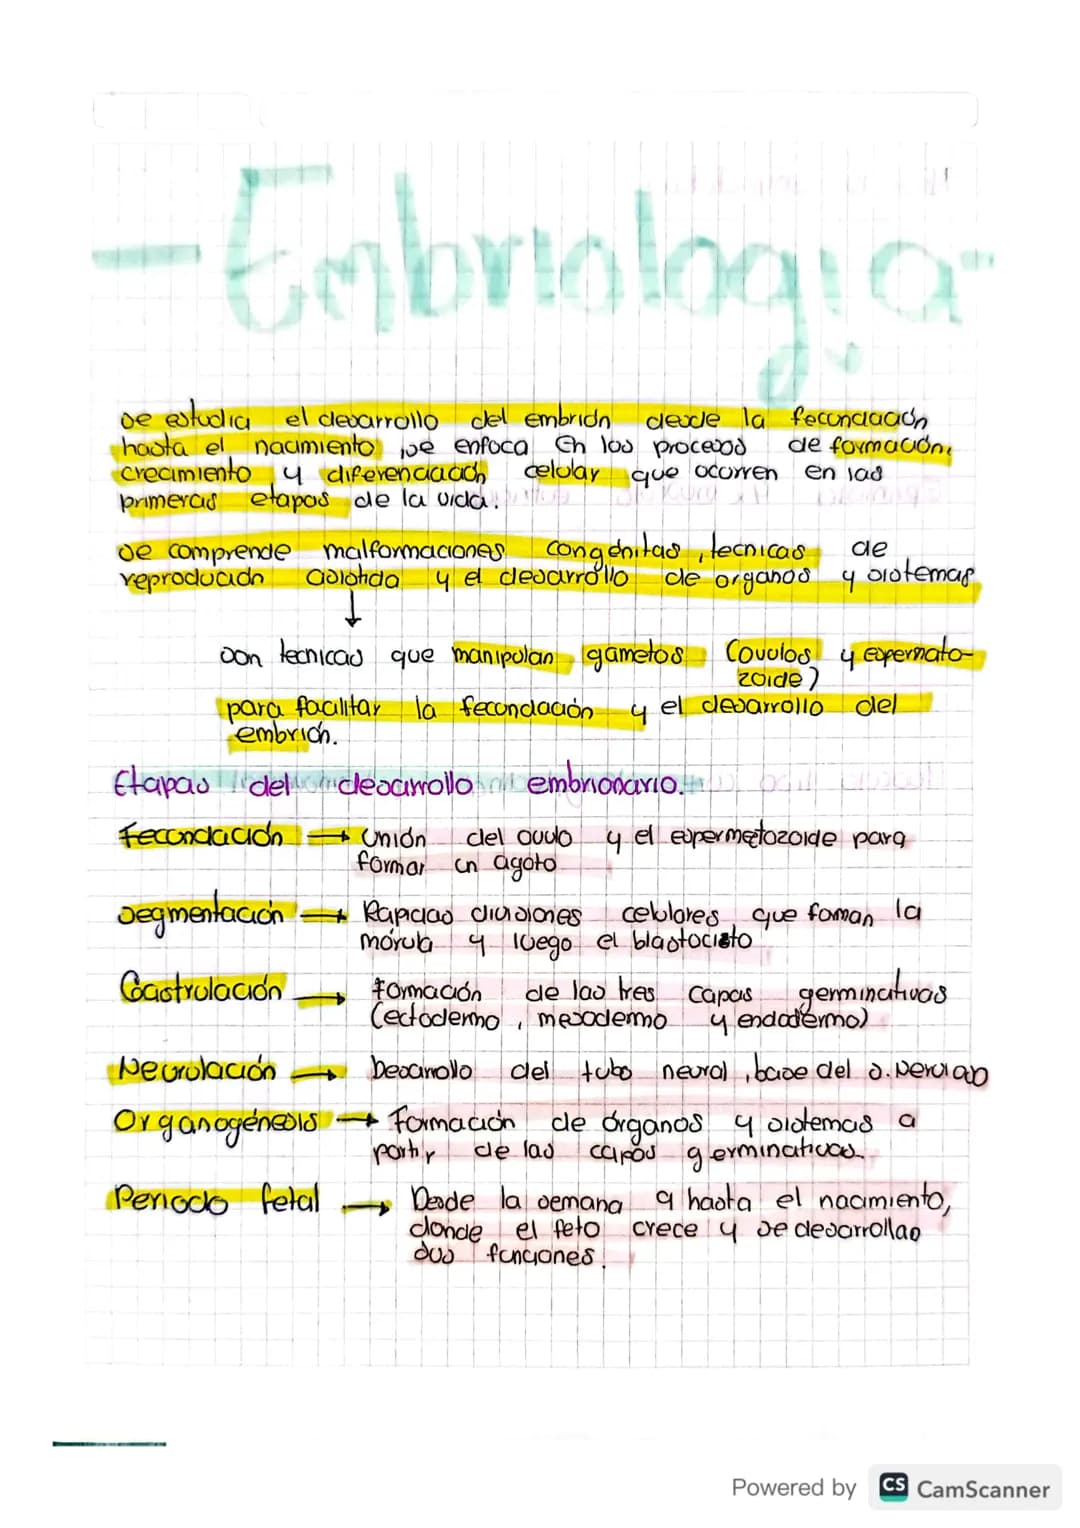 - Embriología -
se estudia el desarrollo del embrión desde la fecundación
hasta el nacimiento, se enfoca en los procesos de formación,
crecimiento y diferenciación celular que ocurren en las
primeras etapas de la vida.
se comprende malformaciones congénitas, tecnicas de
reproducción asistida y el desarrollo de organos y sistemas
↓
son tecnicas que manipulan gametos (ovulos y espermato-
zoide)
para facilitar la fecundación y el desarrollo del
embrión.
Etapas del desarrollo embrionario.
Fecundación → Unión del ovulo y el espermetozoide para
formar un agoto
segmentación → Rapidas divisiones celulares que foman la
mórula y luego el blastocisto
Gastrulación → Formación de las tres capas germinativas
(ectodermo, mesodermo y endodermo)
Neurulación → Desarrollo del tubo neural, base del s. Nervioso
Organogénesis → Formación de órganos y sistemas a
partir de las capas germinativas.
Periodo fetal → Desde la semana 9 hasta el nacimiento,
donde el feto crece y se desarrollan
sus funciones.
Powered by CS CamScanner